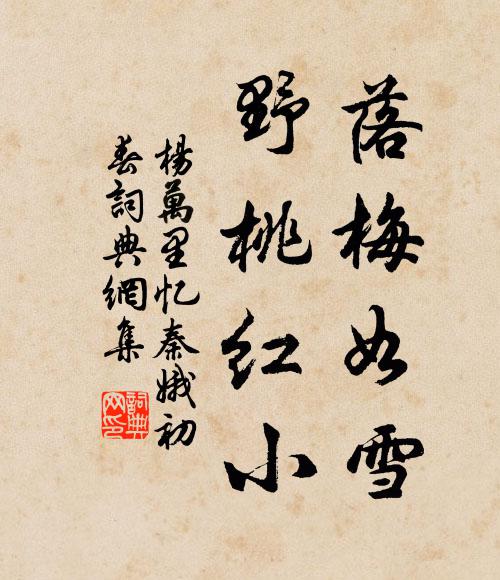 落梅如雪
野桃红小
楊萬里忆秦娥初
春詞典網集
詞典
网印